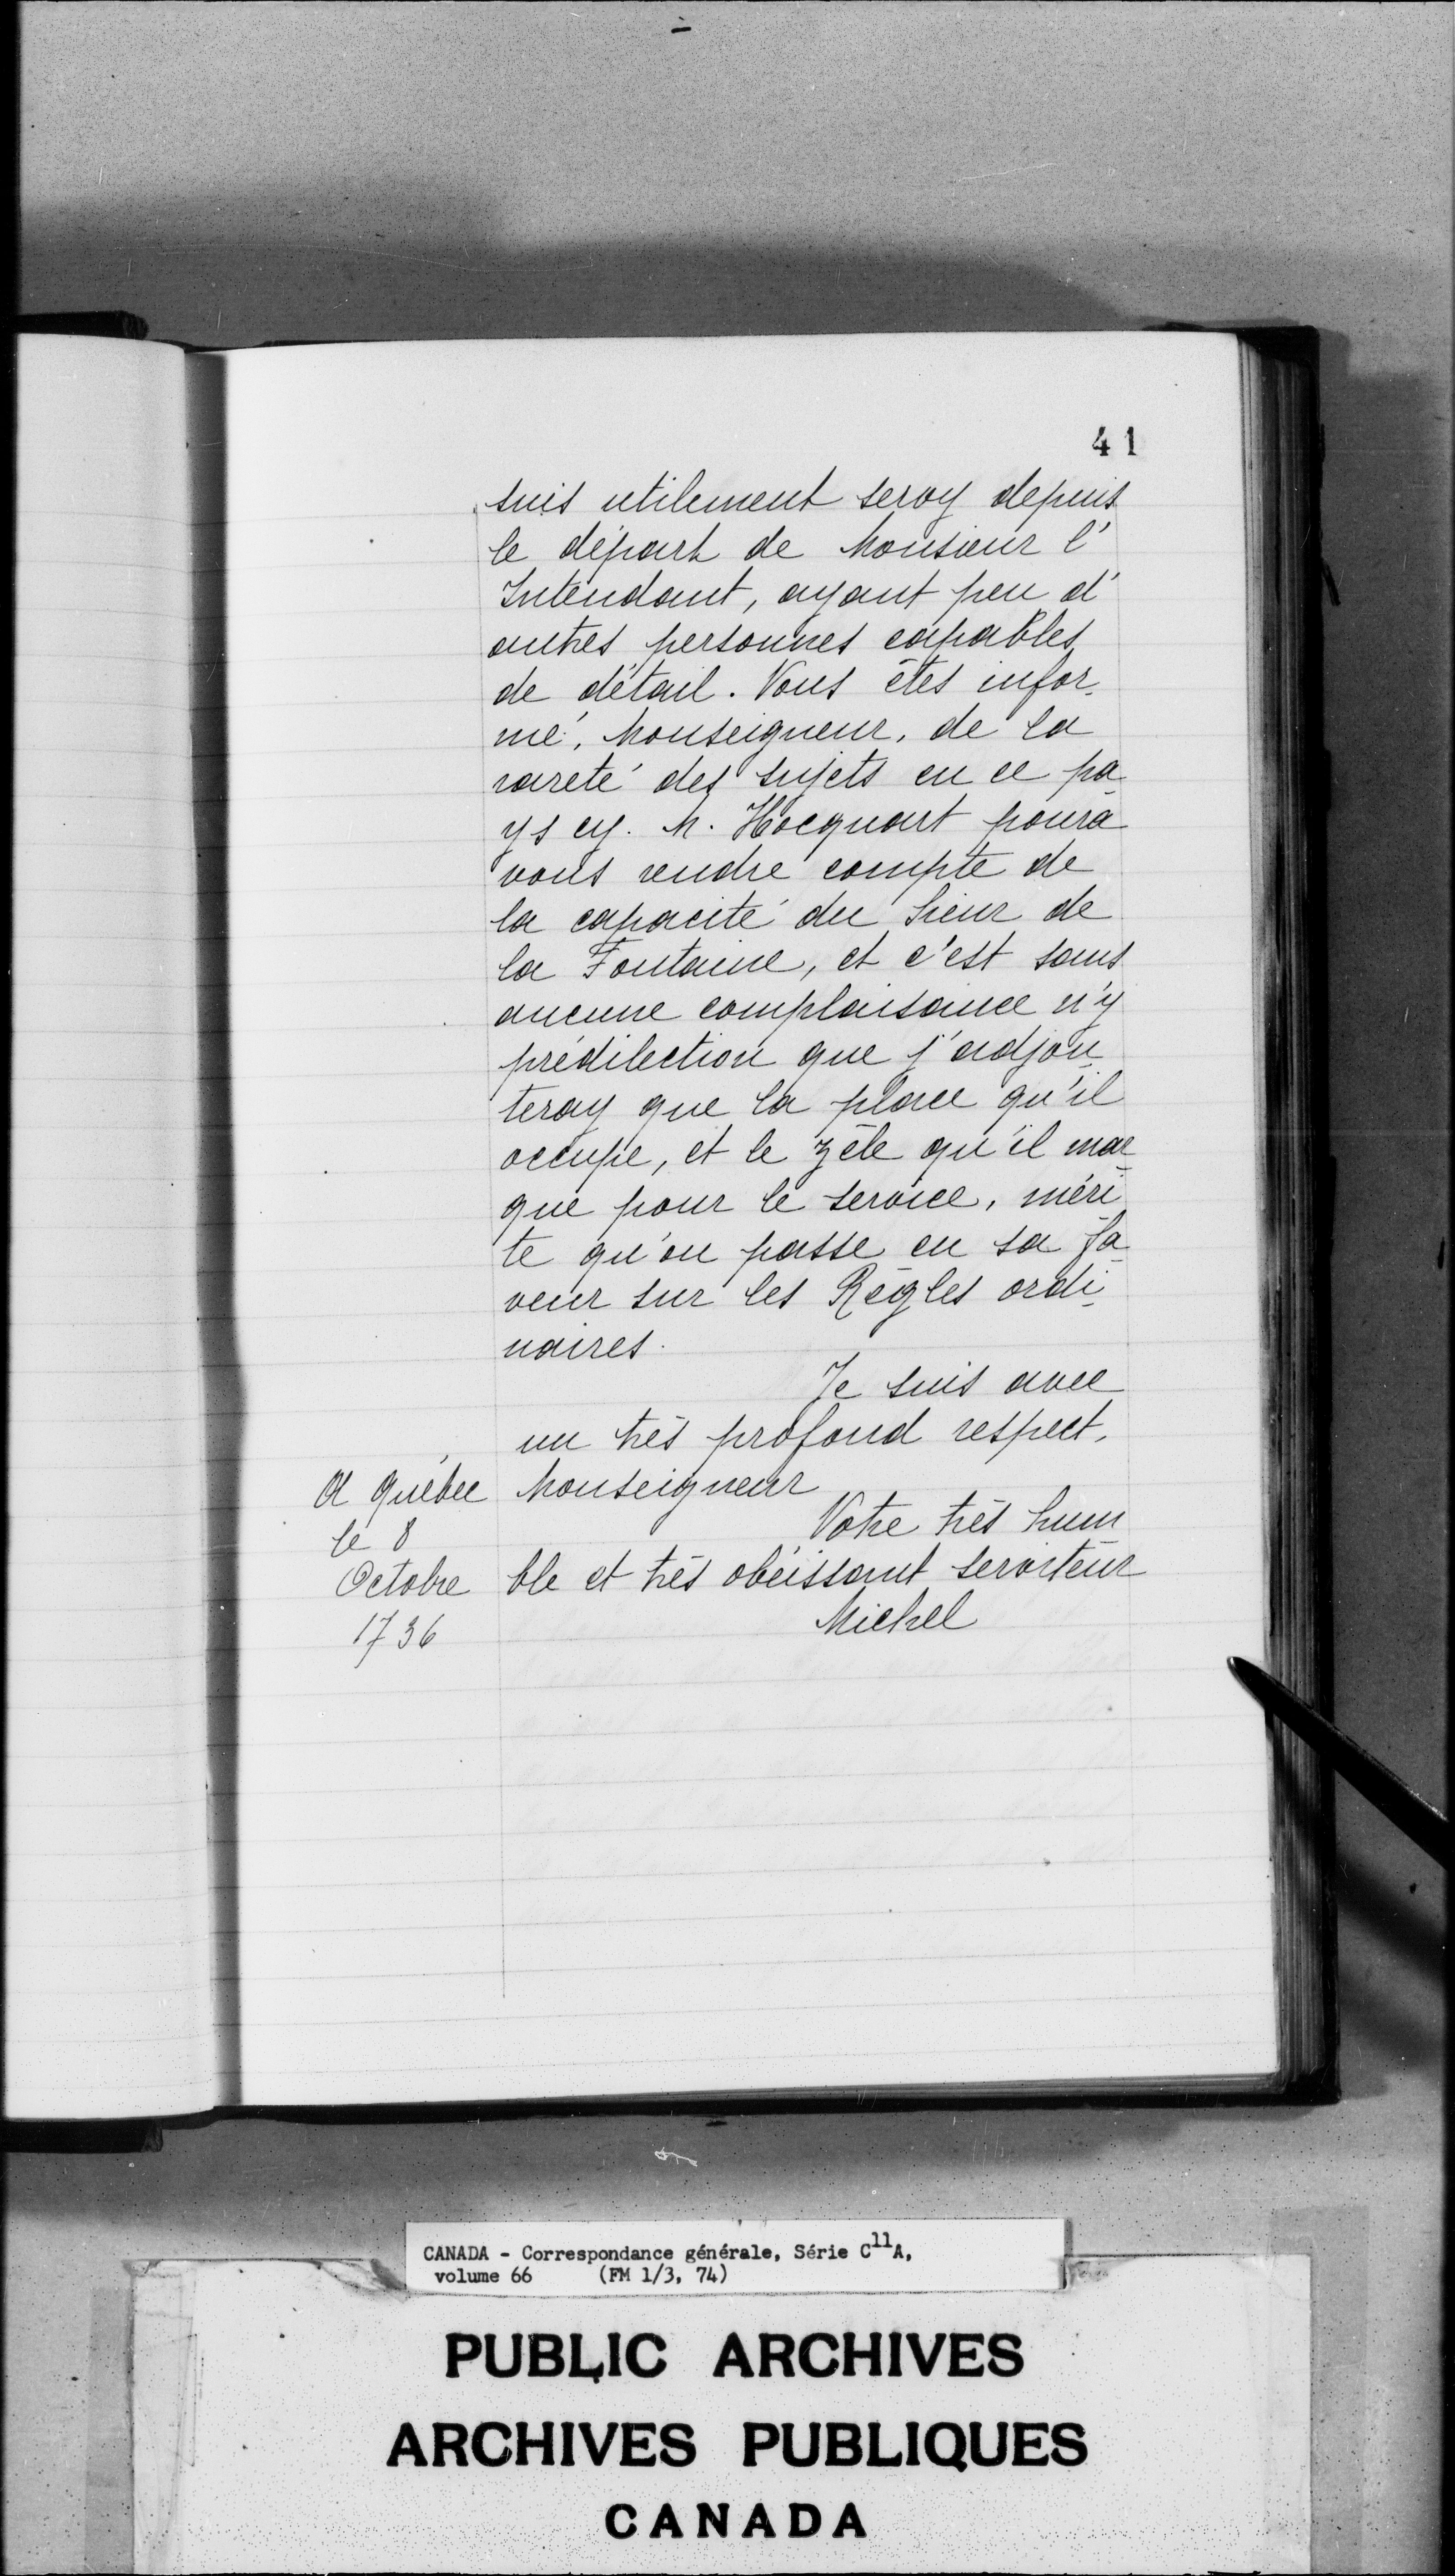 41
suis utilement servy depuis
le départ de Monsieur l'
Intendant, ayant peu d'
autres personnes capables
de détail. Vous êtes infor-
mé, Monseigneur, de la
rareté des sujets en ce pa-
ys cy. M. Hocquart poura
vous rendre compte de
la capacité du Sieur de
la Fontaine, et c'est sans
aucune complaisance n'y
prédilection que j'adjou-
teray que la place qu'il
occupe, et le zèle qu'il mar-
que pour le service, méri-
te qu'on passe en sa fa-
veur sur les Règles ordi-
naires.
Je suis avec
un très profond respect,
Monseigneur
Votre très hum
ble et très obéissant serviteur
Michel
A Québec
le 8
Octobre
1736
CANADA - Correspondance générale, Série C11A,
volume 66 (FM 1/3, 74)
PUBLIC ARCHIVES
ARCHIVES PUBLIQUES
CANADA